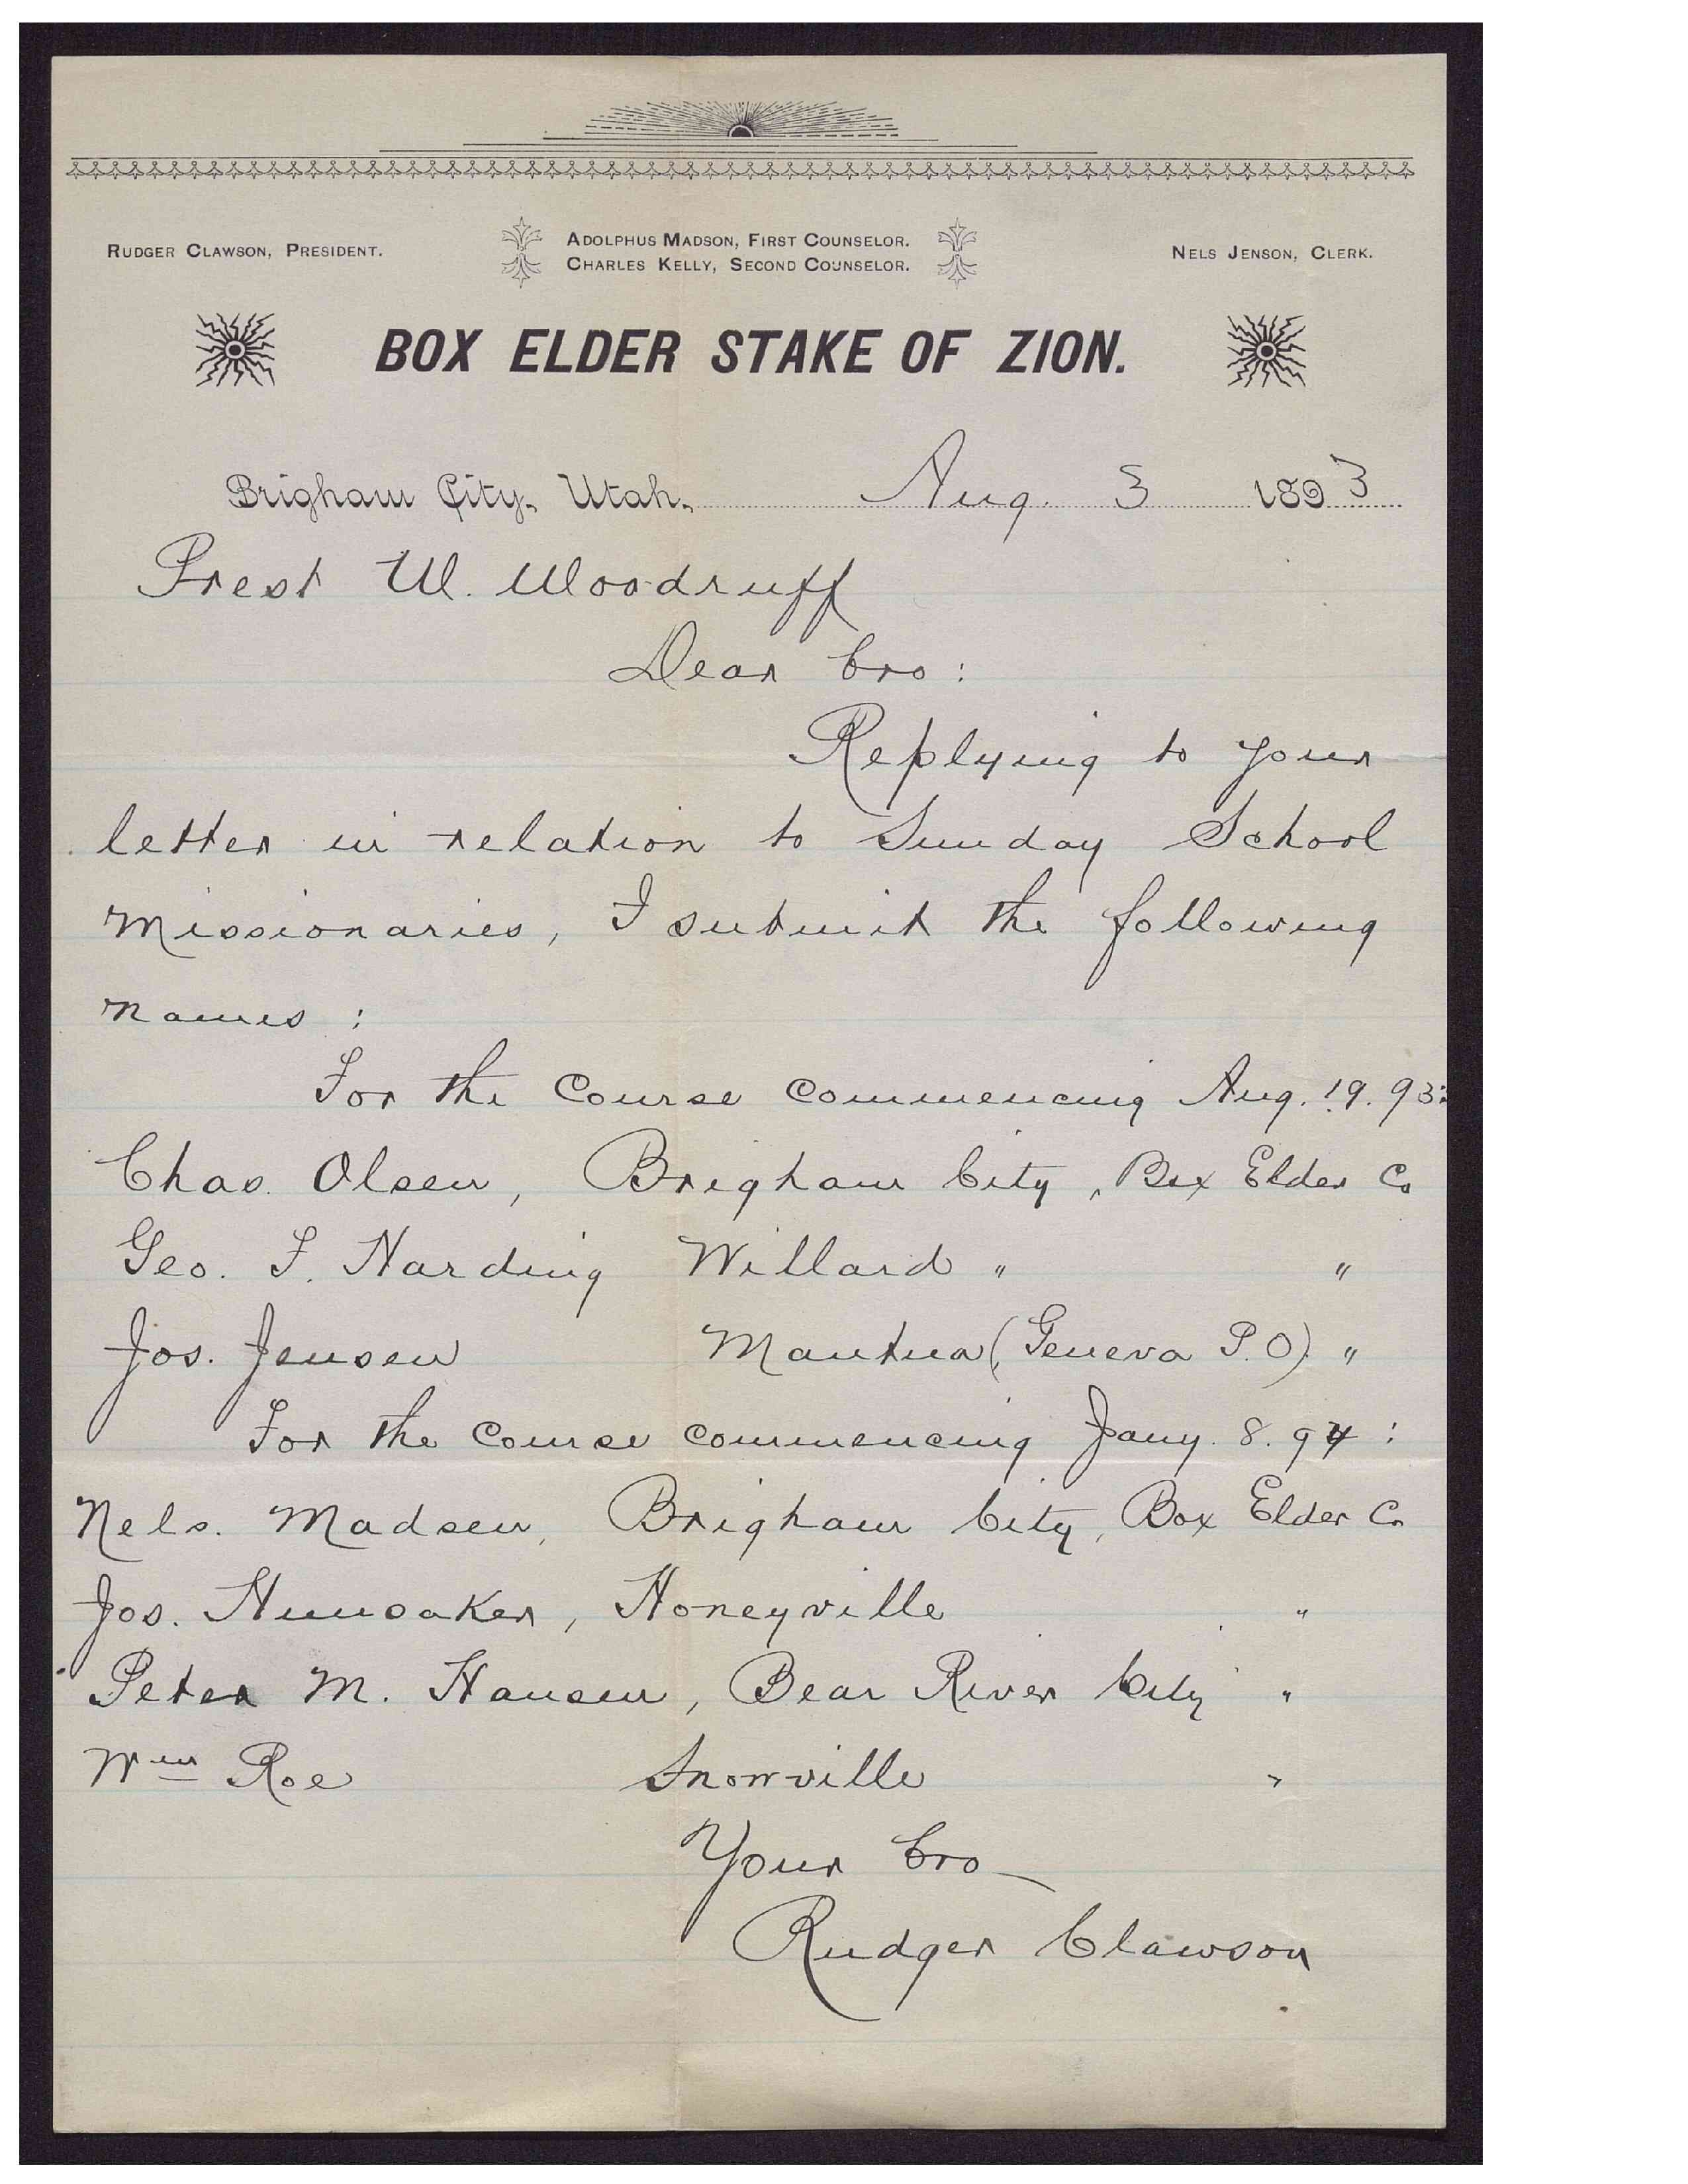 RUDGER CLAWSON, PRESIDENT.
ADOLPHUS MADSON, FIRST COUNSELOR.
CHARLES KELLY, SECOND COUNSELOR.
NELS JENSON, CLERK.
BOX ELDER STAKE OF ZION.
Brigham City, Utah, Aug. 3 1893
Prest W. Woodruff
Dear bro:
Replying to your
letter in relation to Sunday School
Missionaries, I submit the following
names:
For the Course Commencing Aug. 19. 93:
Chas. Olsen, Brigham City, Box Elder Co
Geo. F. Harding Willard " "
Jos. Jensen Mantua (Geneva P.O) "
For the Course commencing Jany. 8. 94:
Nels. Madsen, Brigham City, Box Elder Co
Jos. Hunsaker, Honeyville "
Peter M. Hansen, Bear River City "
Wm Roe Snowville "
Your bro
Rudger Clawson